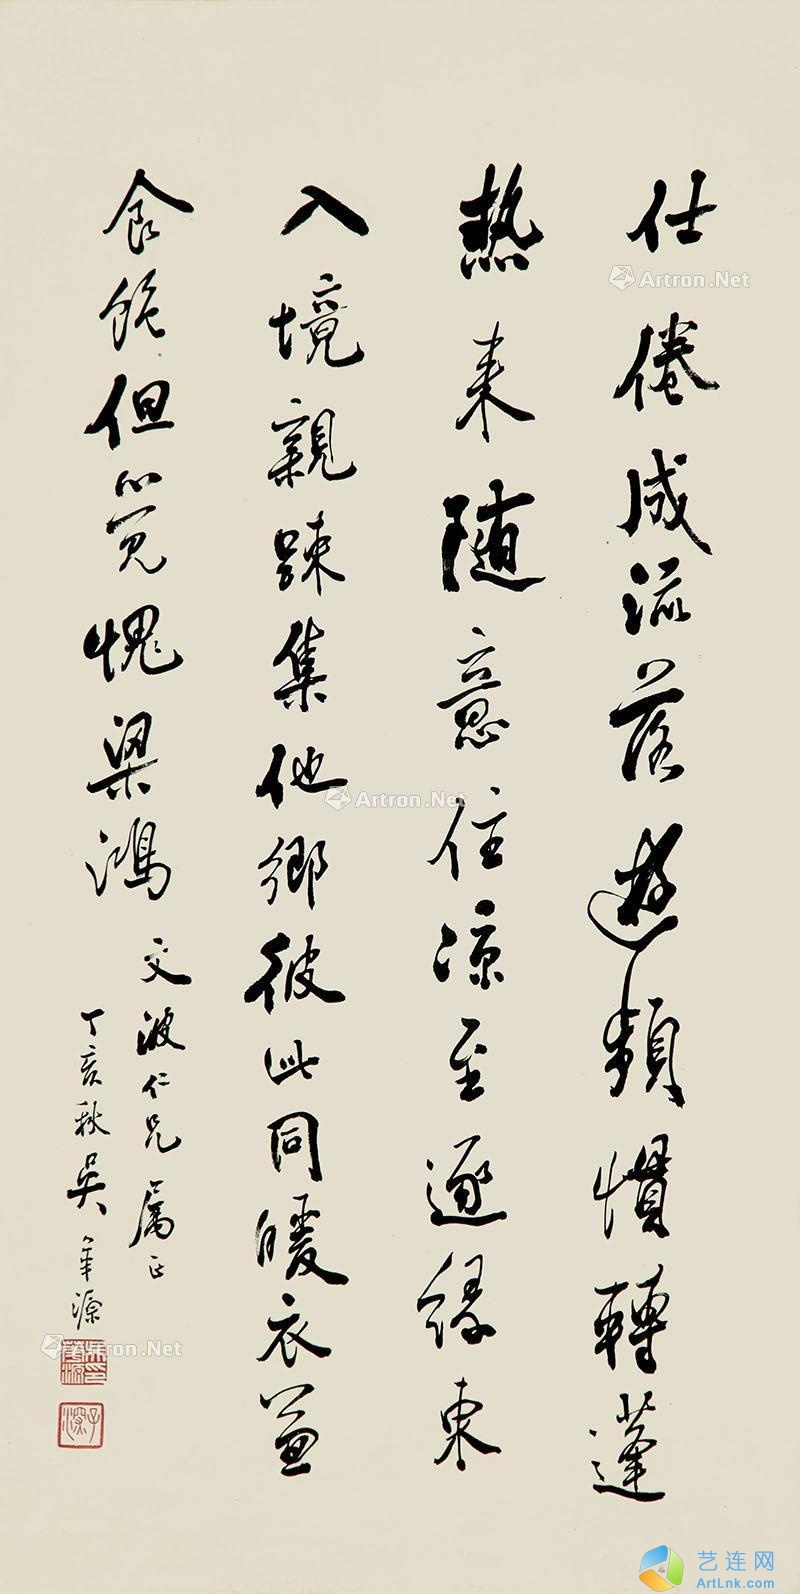 仕倦成流落遊頻慣轉蓬
熱來随意住涼至逐緣東
入境親踈集他鄉彼此同暖衣兼
食飽但覺愧梁鴻
文波仁兄属正
丁亥秋吳華源
Artron.Net
Artron.Net
Artron.Net
艺连网
ArtLnk.com